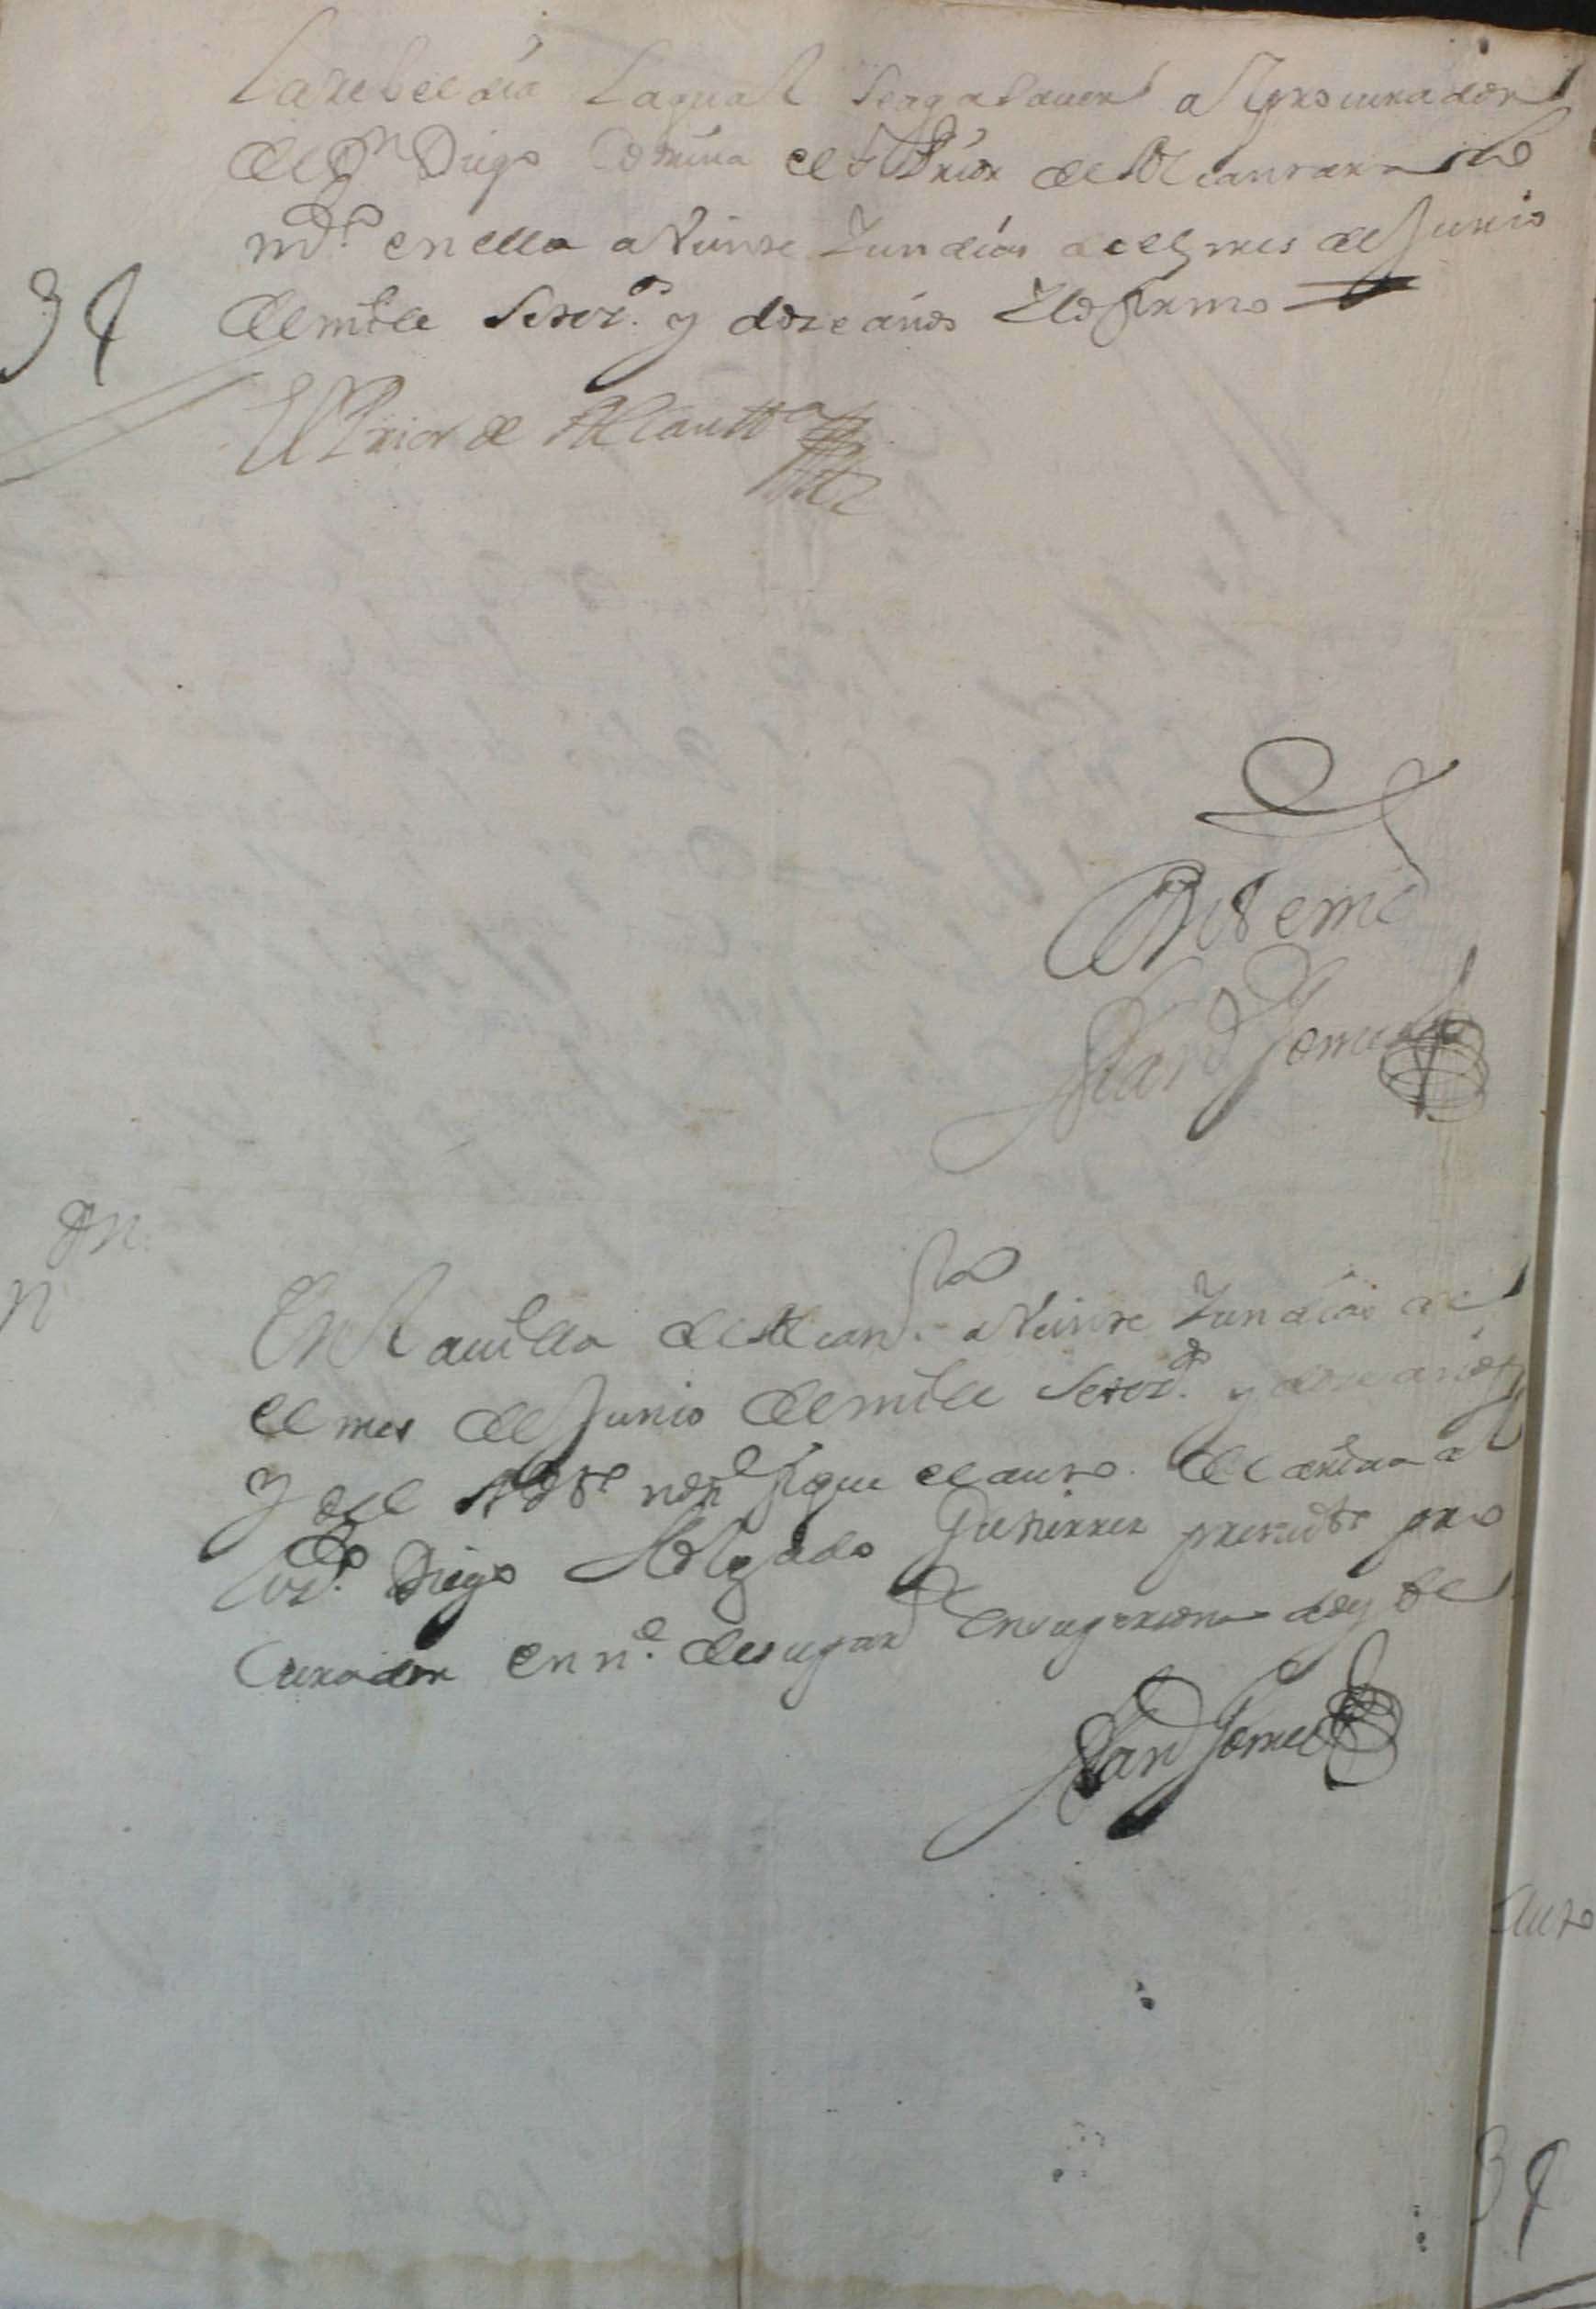 La rebeldia La qual se aga sauer al procurador
de Dn Diego el Sr Prior de Alcantara lo
mdo. en ella a Veinte Y un dias de el mes de Junio
34
de mill Setezos. y doze años Y lo firmo
El Prior de Alcantta
Ante mi
Juan Gomez
En la uilla de Alcanra. a Veinte Y un dias de
el mes de Junio de mill Setezos. y doze años
Yo el notifique el auto de arriua a
Diego Holgado Gutierrez presente pro
curador en ne. de su parte en su persona doy fe
Juan Gomez
auto
34